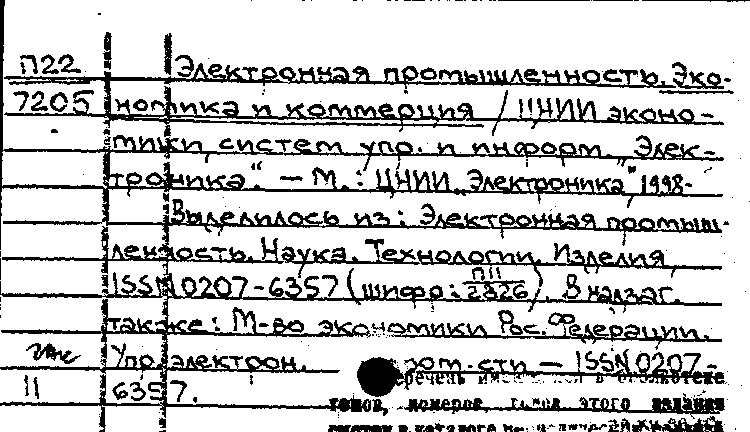 П22 Электронная промышленность. Эко-
7205 номика и коммерция / ЦНИИ эконо-
мики, систем упр. и информ. „Элек-
троника“. — М.: ЦНИИ „Электроника“, 1998-
Выделилось из: Электронная промыш-
ленность. Наука. Технологии. Изделия,
ISSN 0207-6357 (шифр: П11/2826). В надзаг.
также: М-во экономики Рос. Федерации.
Упр. электрон. — ISSN 0207-
11 6357.
в библиотеке
томов, номеров, этого издания